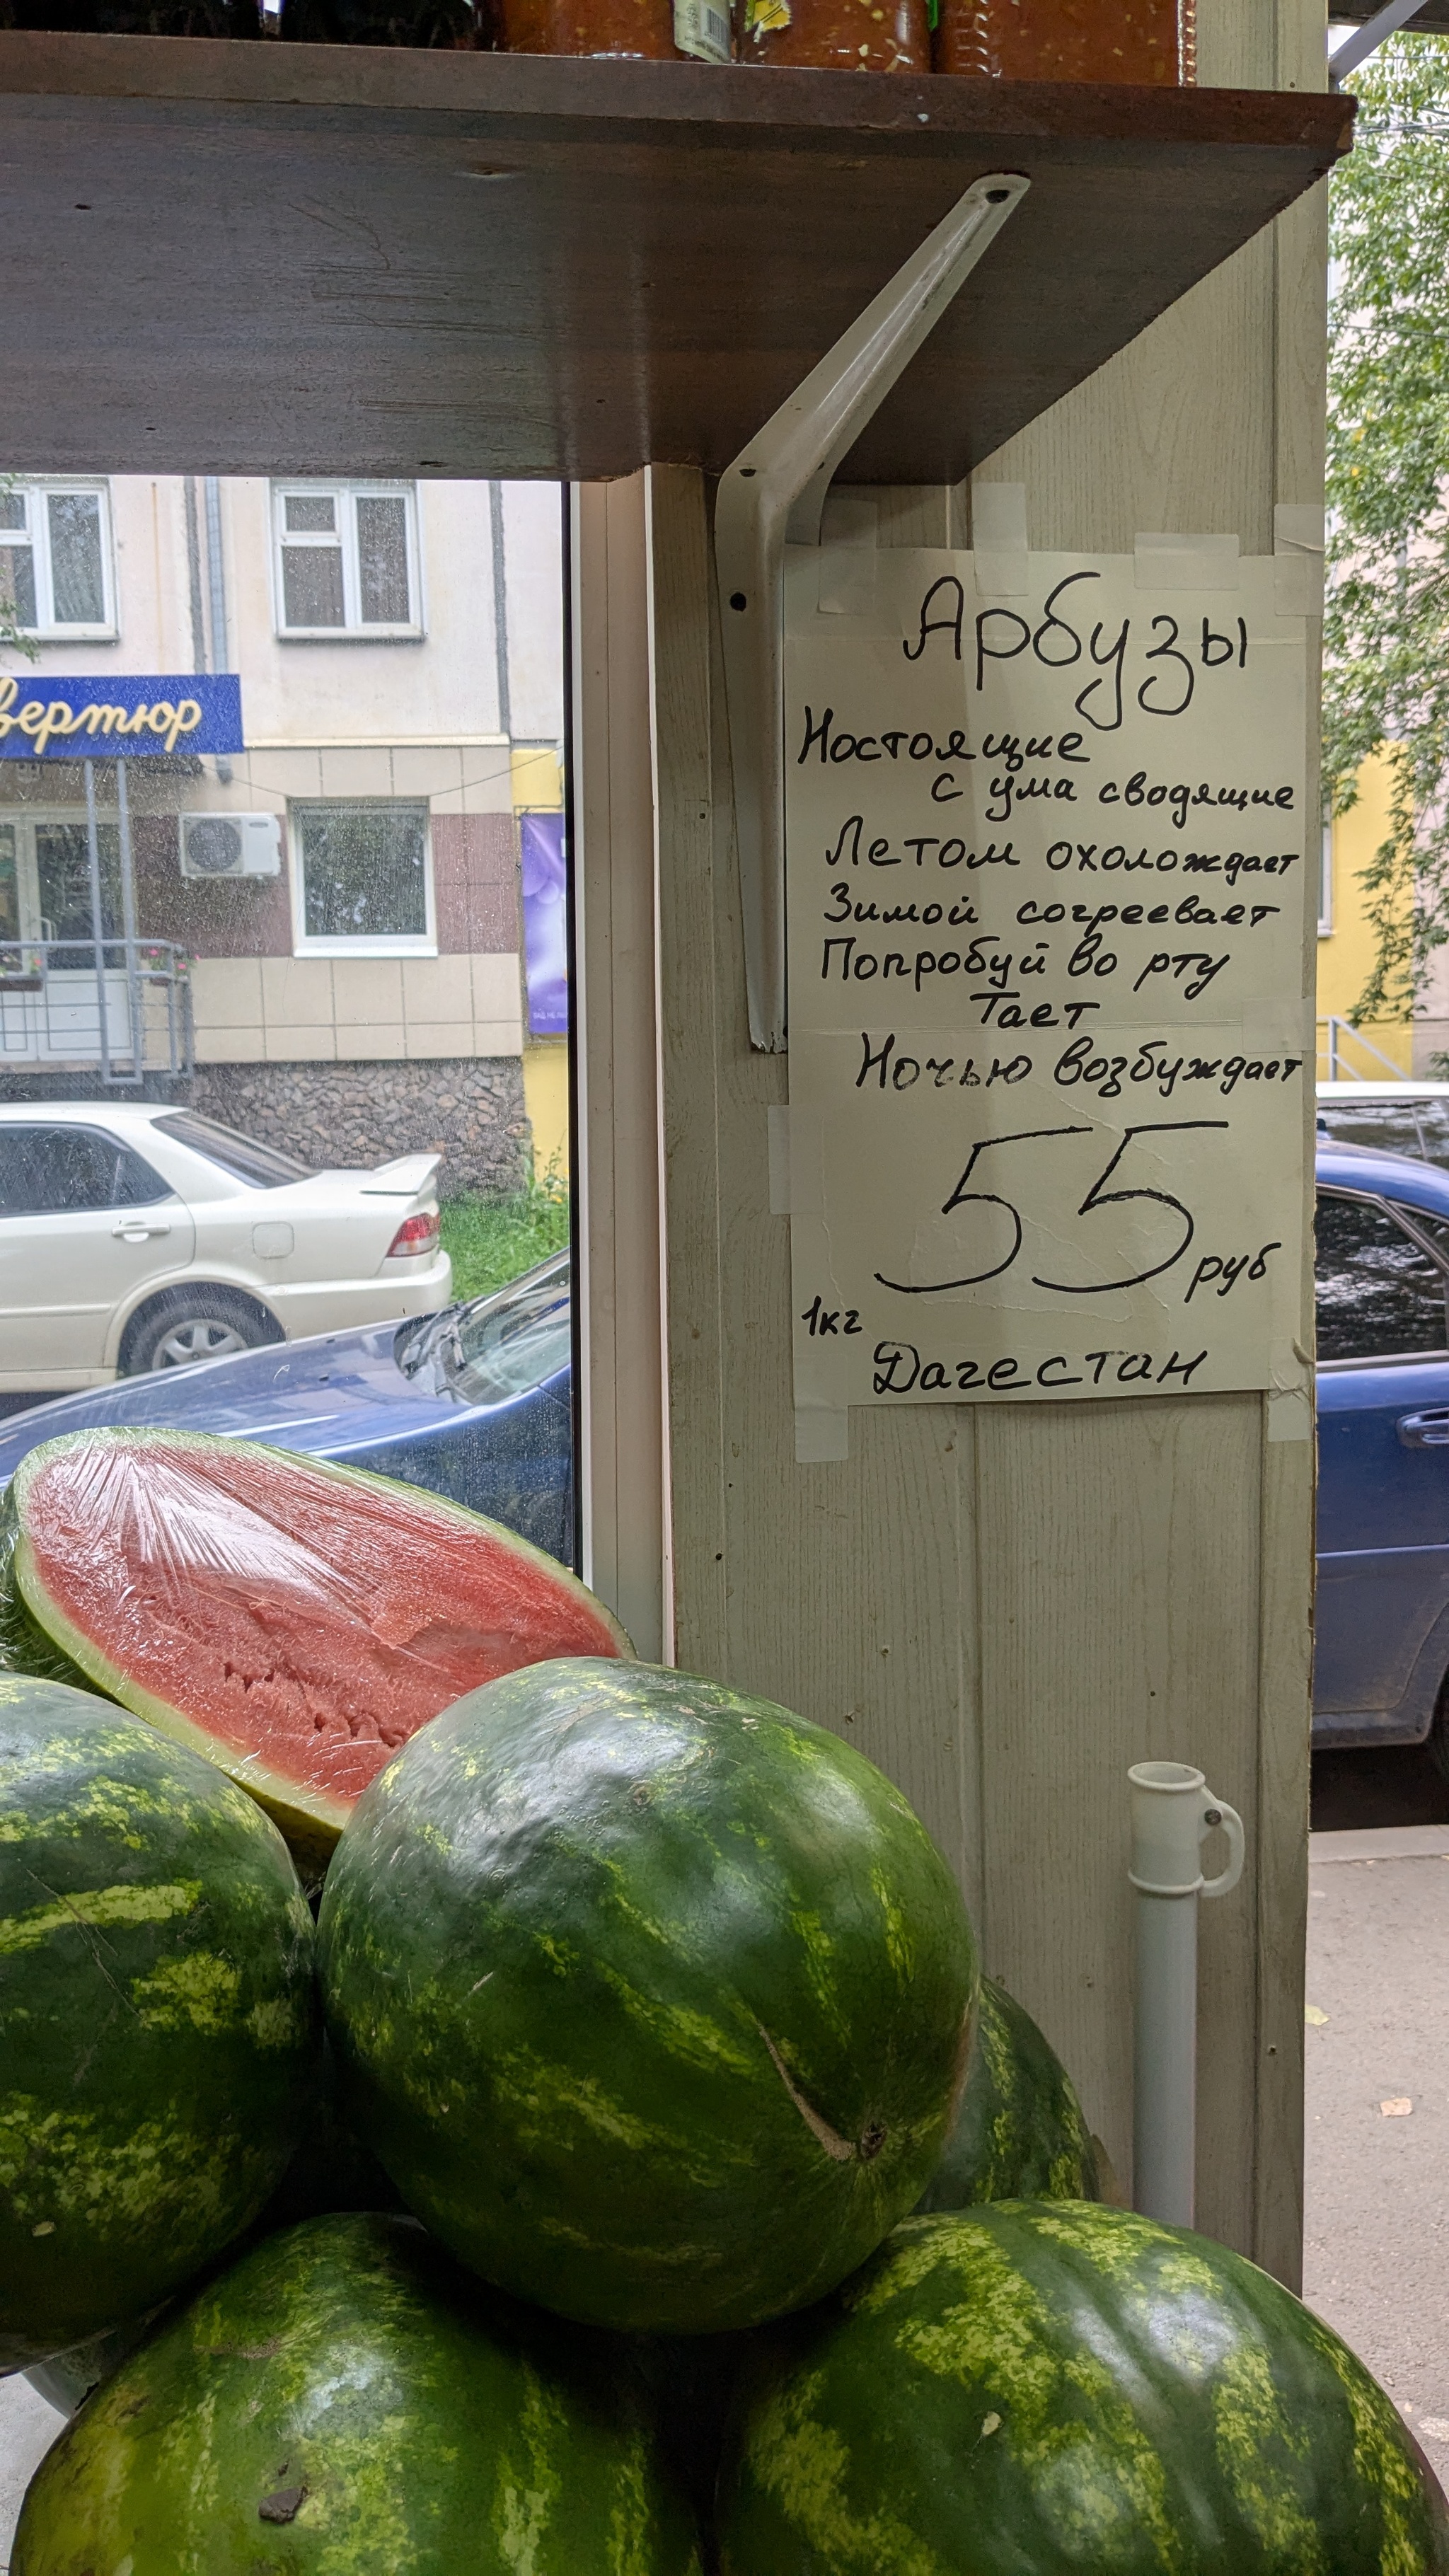 Арбузы
Настоящие
с ума сводящие
Летом охолождает
Зимой согреевает
Попробуй во рту
Тает
Ночью возбуждает
55 руб
1кг
Дагестан
вертюр